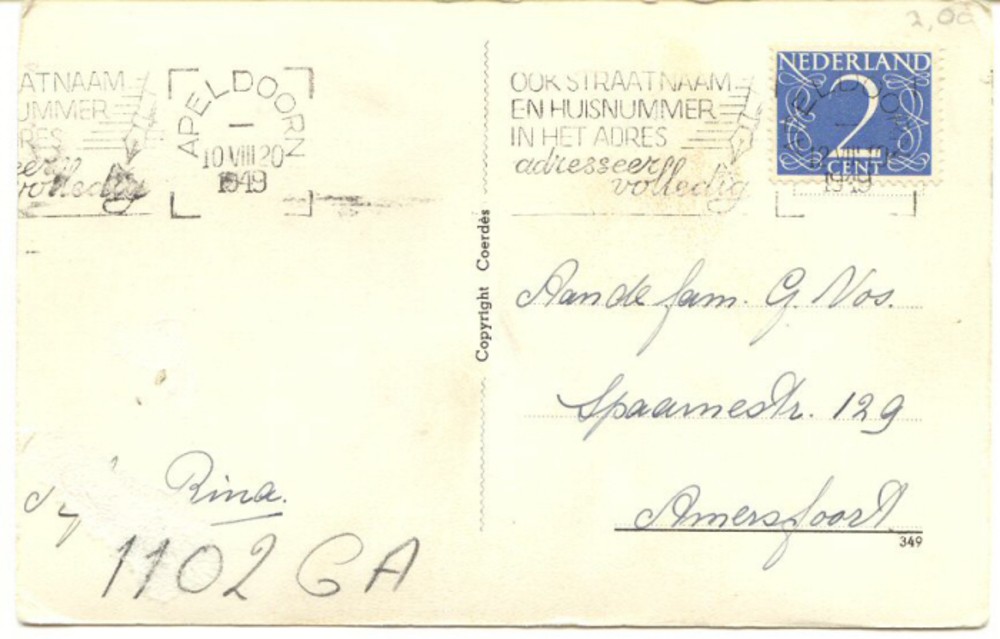 2,00
ATNAAM
UMMER
RES
volledig
APELDOORN
10 VIII 20
1949
OOK STRAATNAAM
EN HUISNUMMER
IN HET ADRES
adresseer
volledig
NEDERLAND
2
CENT
APELDOORN
1949
Copyright Coerdès
Aan de fam. G. Vos.
Spaarnestr. 129
Amersfoort
349
Rina.
1102 GA